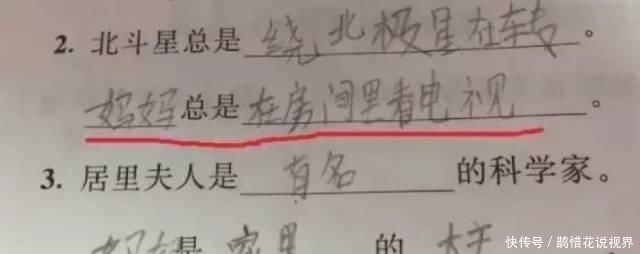 2. 北斗星总是绕北极星在转。
妈妈总是在房间里看电视。
3. 居里夫人是有名的科学家。
是家里的
快传号／鹊惜花说视界